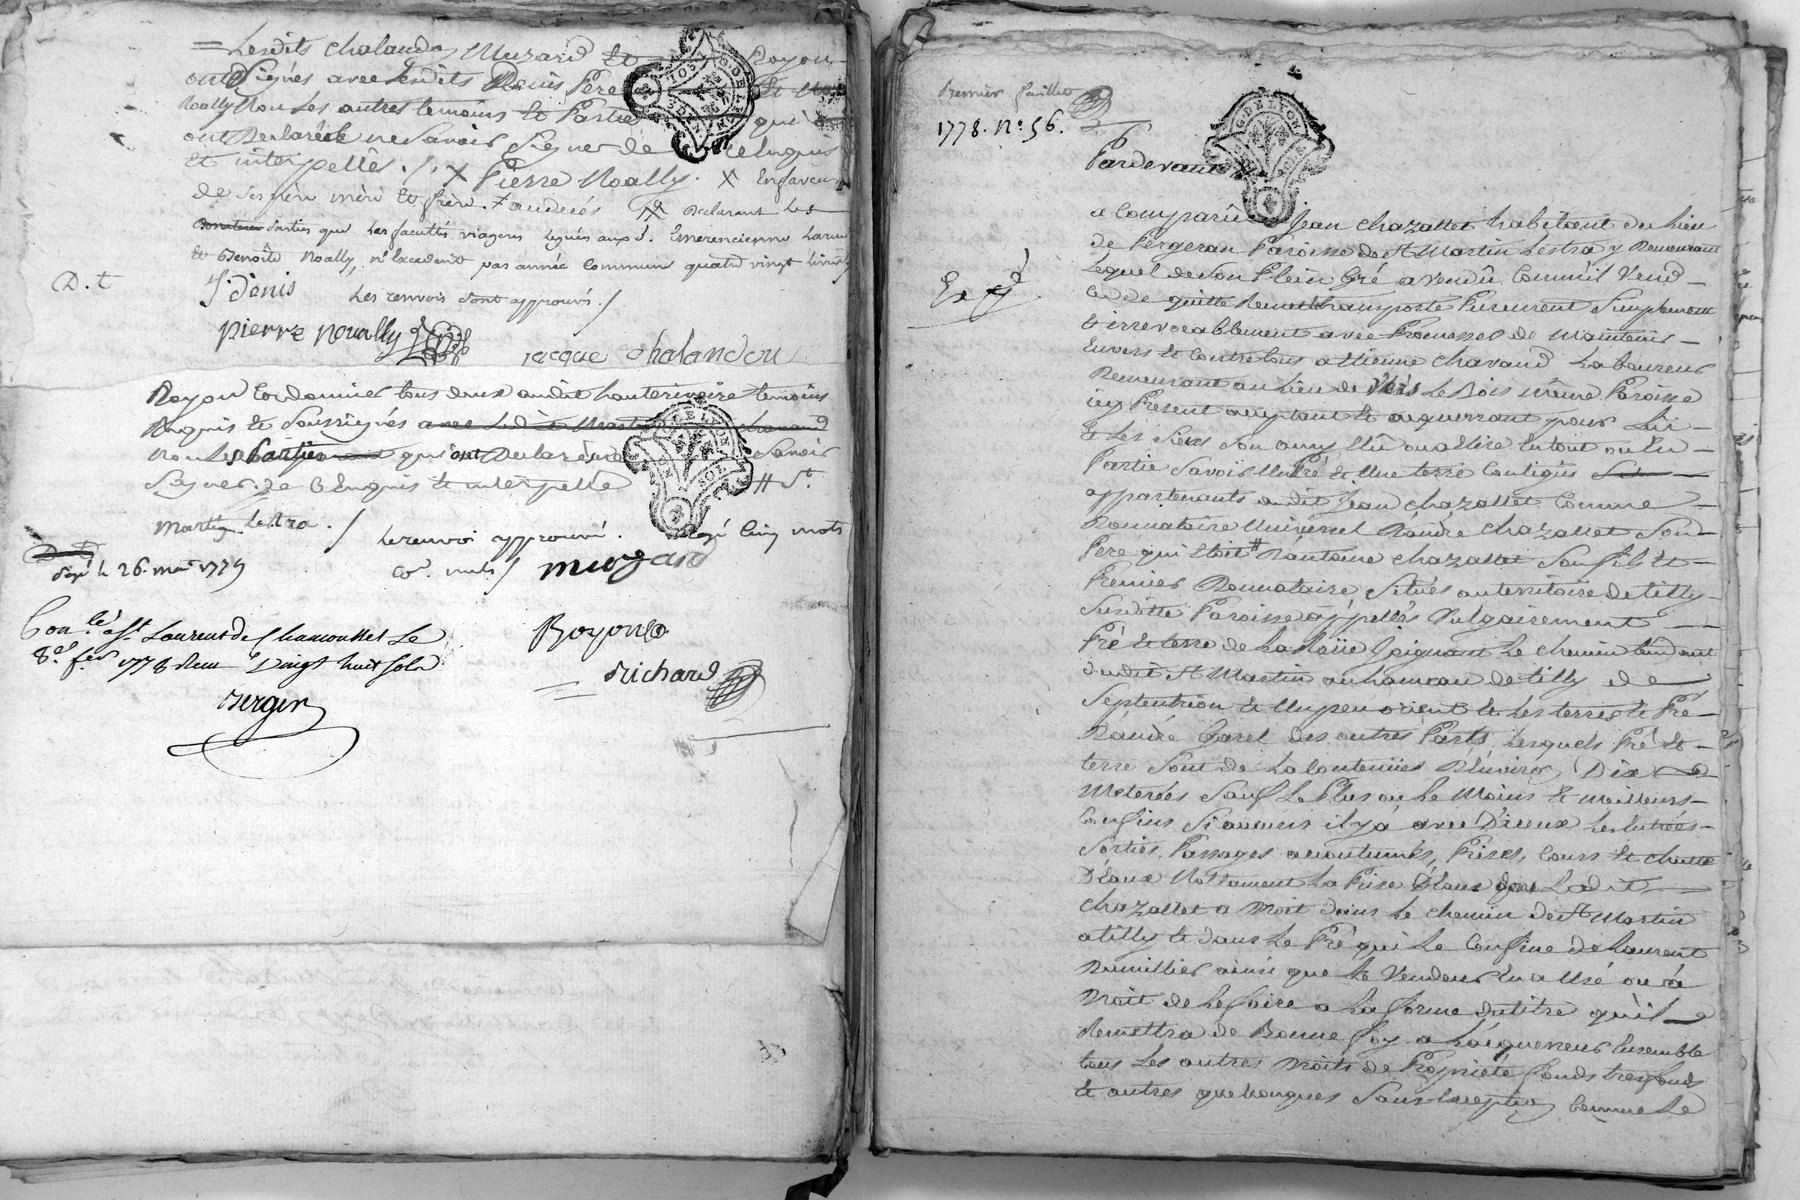 Lesdits chalandon Muzard et Royon
ont Signés avec Lesdits Denis Pere
Noally Non Les autres temoins et Partie qui
ont Declaré ne Savoir Signer de ce Enquis
et interpellés ./. X Pierre Noally. X En faveur
de Ses pere mere et frere.
Parties que Les facultés viageres
et Benoîte Noally, n'Excedent pas année Commune quatre vingt Livres
D. t
J. Denis Les renvois Sont approuvés ./
pierre noually
jacque chalandon
Royon Cordonnier tous deux audit hauterivoire temoins
Requis et Soussignés
non Les Parties qui ont Declaré Savoir
Signer de ce Enquis et interpellé
Martin Lestra ./ Le renvoi approuvé. Rayé Cinq mots
Expé le 26. mai 1779
muzard
Con.lé à St Laurent de Chamousset Le
8.e fer 1778 Reçu Vingt huit Sols
Royon
Richard
Berger
Premier feuillet
1778. No. 56.
Pardevant
a Comparû Jean Chazallet habitant du Lieu
de Pergeran Paroisse de St Martin Lestra y Demeurant
Lequel de Son Plein Gré a Vendû Comme il Vend
Cede quitte Remet transporte Purement Simplement
Et irrevocablement avec Promesse de Maintenir
Envers et Contre tous a Etienne Chavand Laboureur
Demeurant au Lieu de Vers Le Bois même Paroisse
icy Present acceptant et acquerrant pour Lui
Et Les Siens Son amy Elû ou a Elire En tout ou En
Partie Savoir Un Pré et Une terre Contigus
appartenants audit Jean Chazallet Comme
Donnataire Universel D'andré Chazallet Son
Pere qui Etoit D'antoine Chazallet Son fils et
Premier Donnataire Situés au territoire de tilly
Susditte Paroisse appellés Vulgairement
Pré et terre de La Joignant Le Chemin tendant
dudit St Martin au hameau de tilly de
Septentrion et Un peu orient et Les terres et Pré
D'andré Garel des autres Parts, Lesquels Pré et
terre Sont de La Contenüe D'Environ Dix
Meterées Sauf Le Plus ou Le Moins et meilleurs
Confins Si aucuns il y a avec D'iceux Les Entrées
Sorties, Passages accoutumés, Prises, Cours et Chutte
D'Eaux Nottament La Prise D'Eaux que Ledit
Chazallet a Droit dans Le Chemin de St Martin
a tilly et dans Le Pré qui Le Confine de Laurent
ainsi que Le Vendeur En a Usé ou a
Droit de Le faire a La forme du titre qu'il
Remettra de Bonne foy a L'acquereur Ensemble
tous Les autres Droits de Propriété fonds tresfonds
Et autres quelconques Sans Exception Comme Le